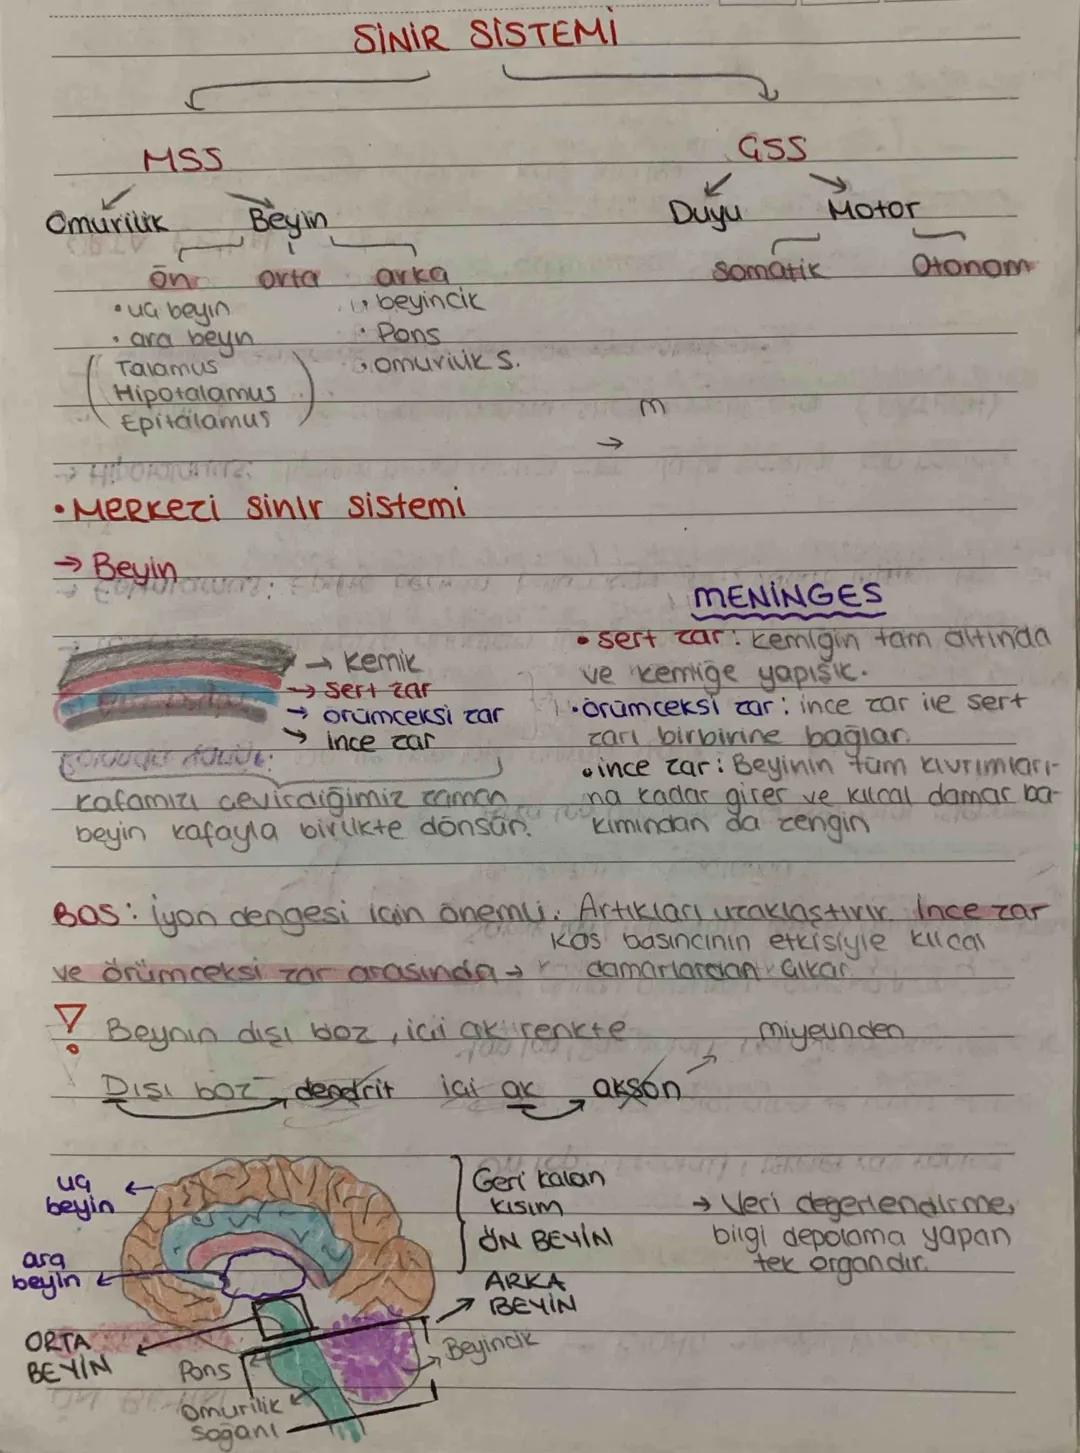 SİNİR SİSTEMİ
MSS
GSS
Omurilik
Beyin
Duyu
Motor
ön
orta
arka
Somatik
Otonom
• uç beyin
• beyincik
• ara beyn
• Pons
Talamus
• omurilik s.
Hipotalamus
Epitalamus
m
→
• Merkezi Sinir Sistemi
→ Beyin
MENİNGES
→ Kemik
→ Sert zar
→ örümceksi zar
→ ince zar
• Sert zar: kemiğin tam altında
ve kemiğe yapışık.
• örümceksi zar: ince zar ile sert
zarı birbirine bağlar.
• ince zar: Beyinin tüm kıvrımları-
na kadar girer ve kılcal damar ba-
kımından da zengin
Kafamızı çevirdiğimiz zaman
beyin kafayla birlikte dönsün.
BOS: İyon dengesi için önemli. Artıkları uzaklaştırır. İnce zar
ve örümceksi zar arasında →
kas basıncının etkisiyle kılcal
damarlardan çıkar.
! Beynin dışı boz, içi ak renkte
miyelinden
Dışı boz dendrit içi ak akson
uç
beyin
ara
beyin
ORTA
BEYİN
Pons
Omurilik
Soğanı
Geri kalan
kısım
ÖN BEYİN
ARKA
BEYİN
Beyincik
→ Veri değerlendirme,
bilgi depolama yapan
tek organdır.